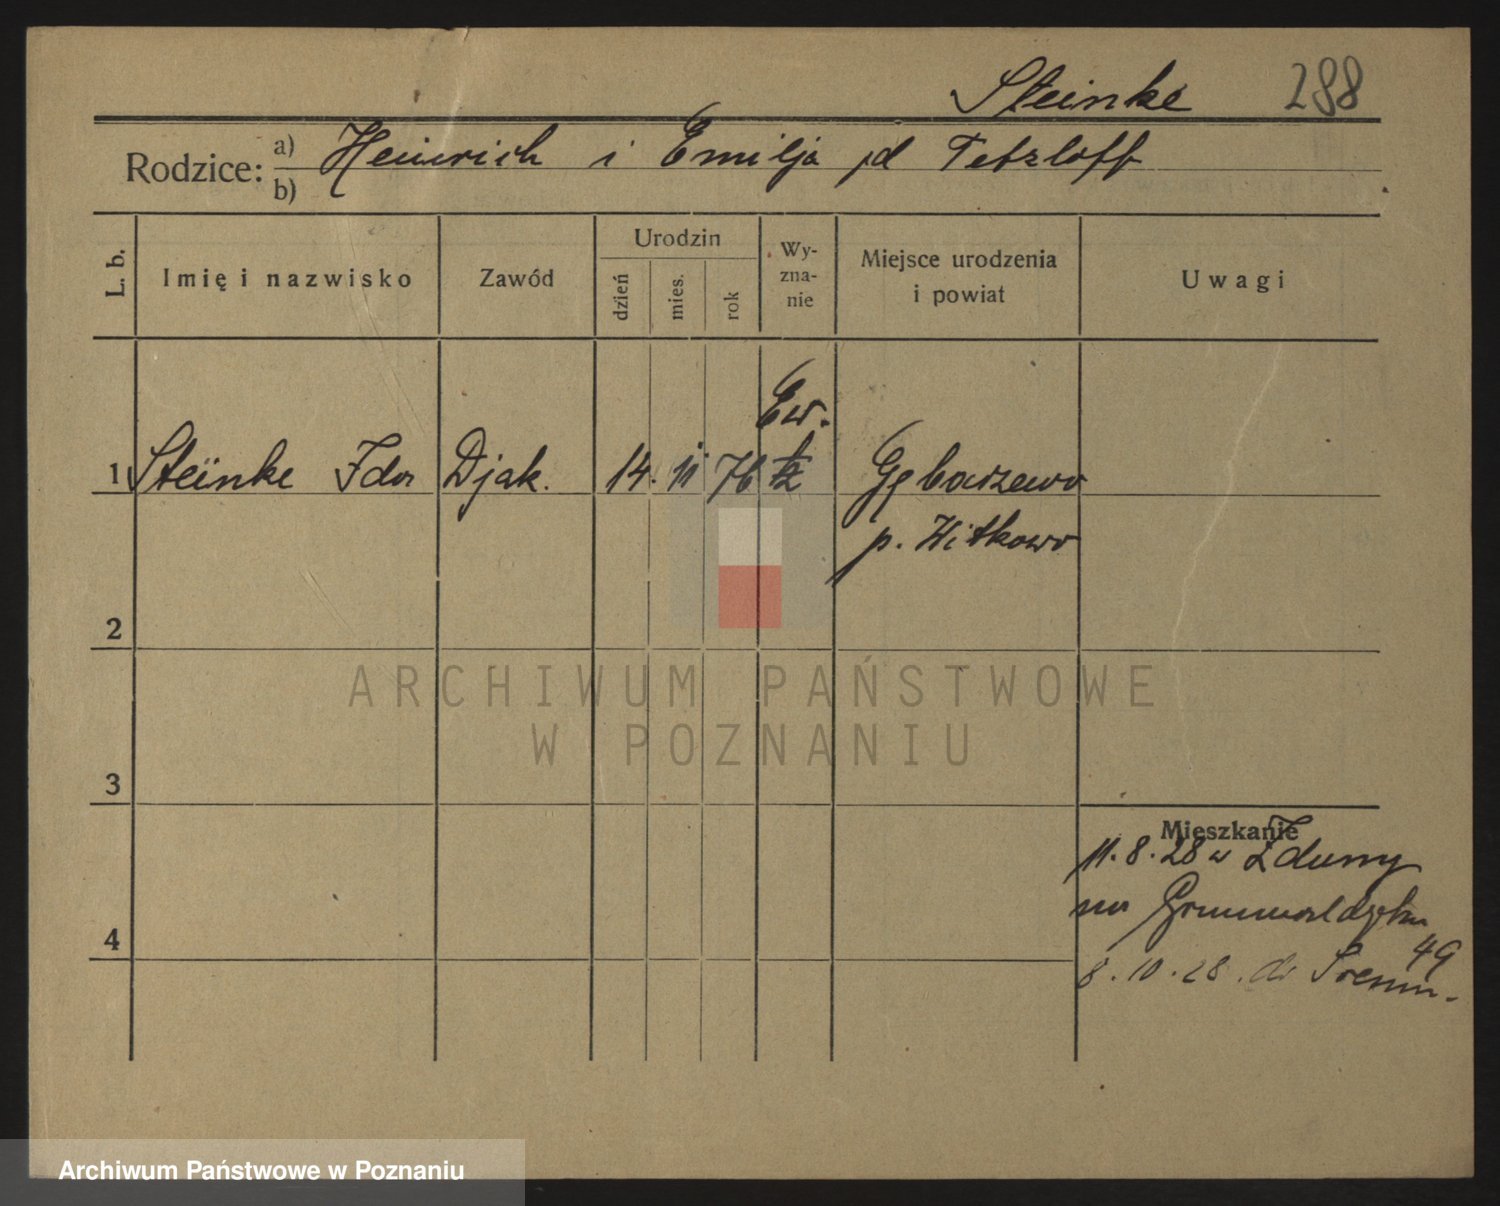 Steinke 288
Rodzice: a) Heinrich i Emilja zd Tetzloff
b)
L. b.
Imię i nazwisko
Zawód
Urodzin
dzień
mies.
rok
Wy-
zna-
nie
Miejsce urodzenia
i powiat
Uwagi
Ew.
1 Steinke Ida Djak. 14. 11 76 Gębarzewo
p. Witkowo
2
ARCHIWUM PAŃSTWOWE
W POZNANIU
3
Mieszkanie
11. 8. 28 w Zduny
na Grunwaldzka
49
4
8. 10. 28. do Śremu.
Archiwum Państwowe w Poznaniu